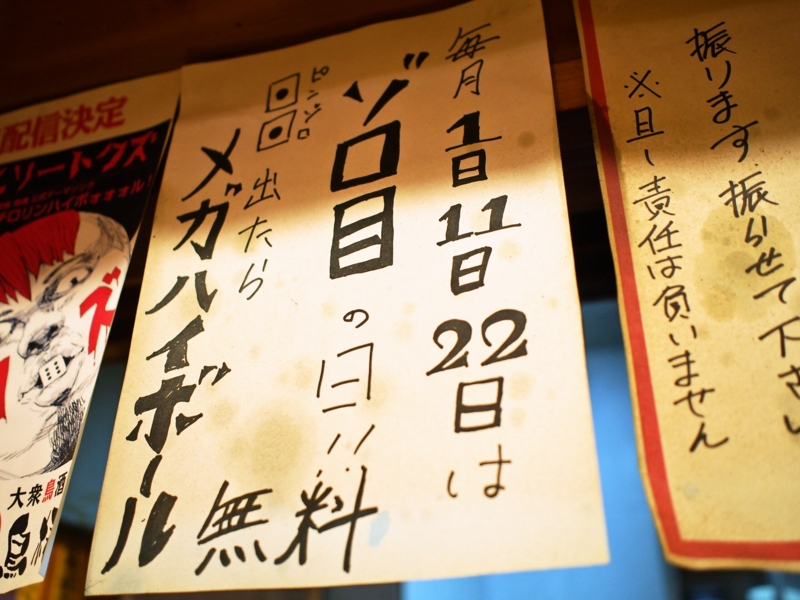 振ります 振らせて下さい
※且し責任は負いません
毎月1日11日22日は
ゾロ目の日!!
ピンゾロ
出たら
メガハイボール
無料
配信決定
ソートクズ
チロリンハイボオオオル!
ズ
大衆鳥酒